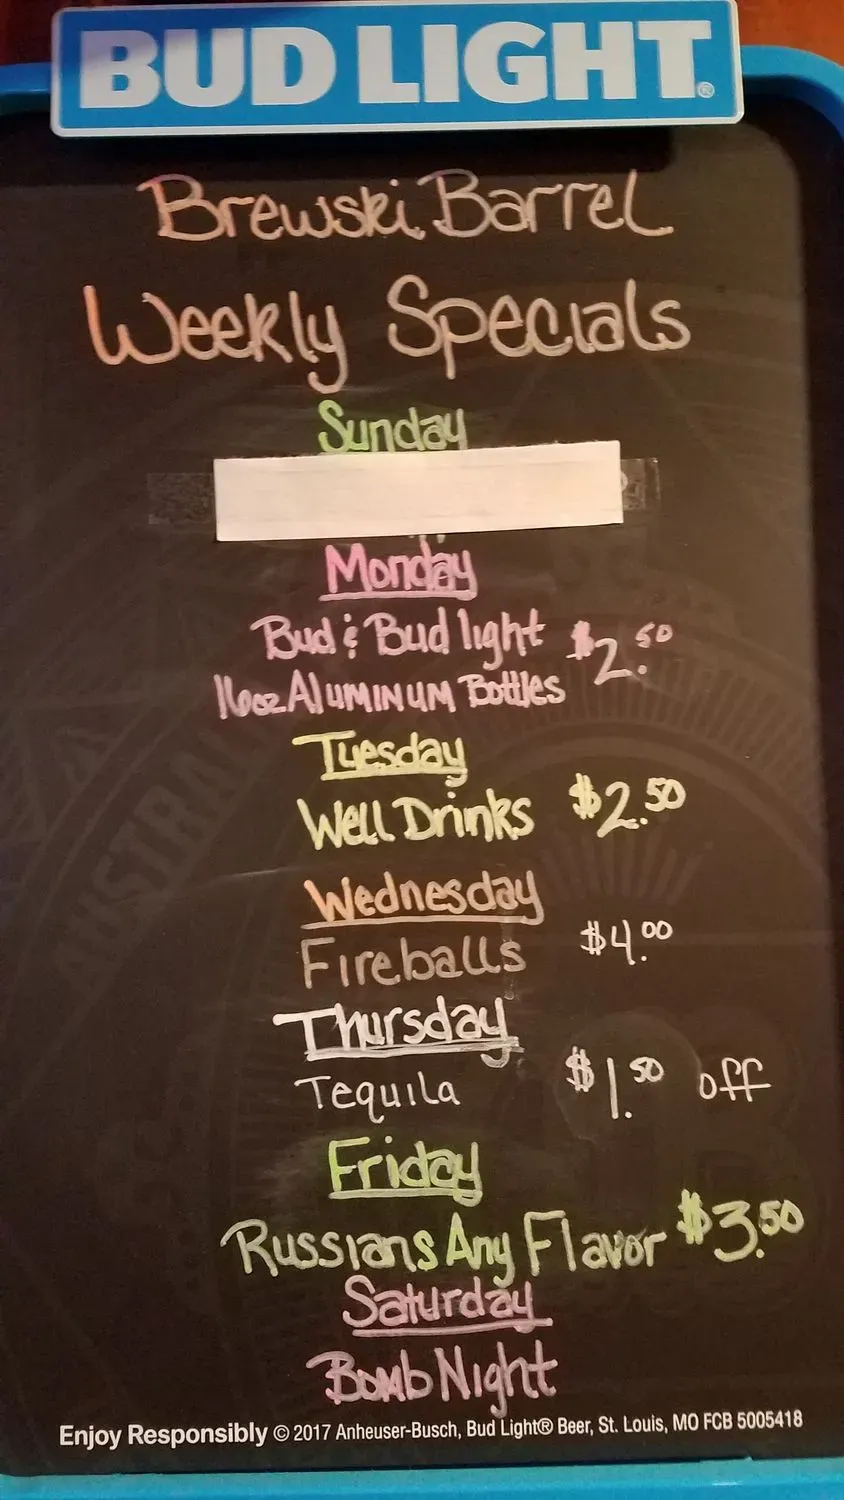 BUD LIGHT®
Brewski Barrel
Weekly Specials
Sunday
Monday
Bud & Bud light $2.50
16oz Aluminum Bottles
Tuesday
Well Drinks $2.50
Wednesday
Fireballs $4.00
Thursday
Tequila $1.50 off
Friday
Russians Any Flavor $3.50
Saturday
Bomb Night
Enjoy Responsibly © 2017 Anheuser-Busch, Bud Light® Beer, St. Louis, MO FCB 5005418